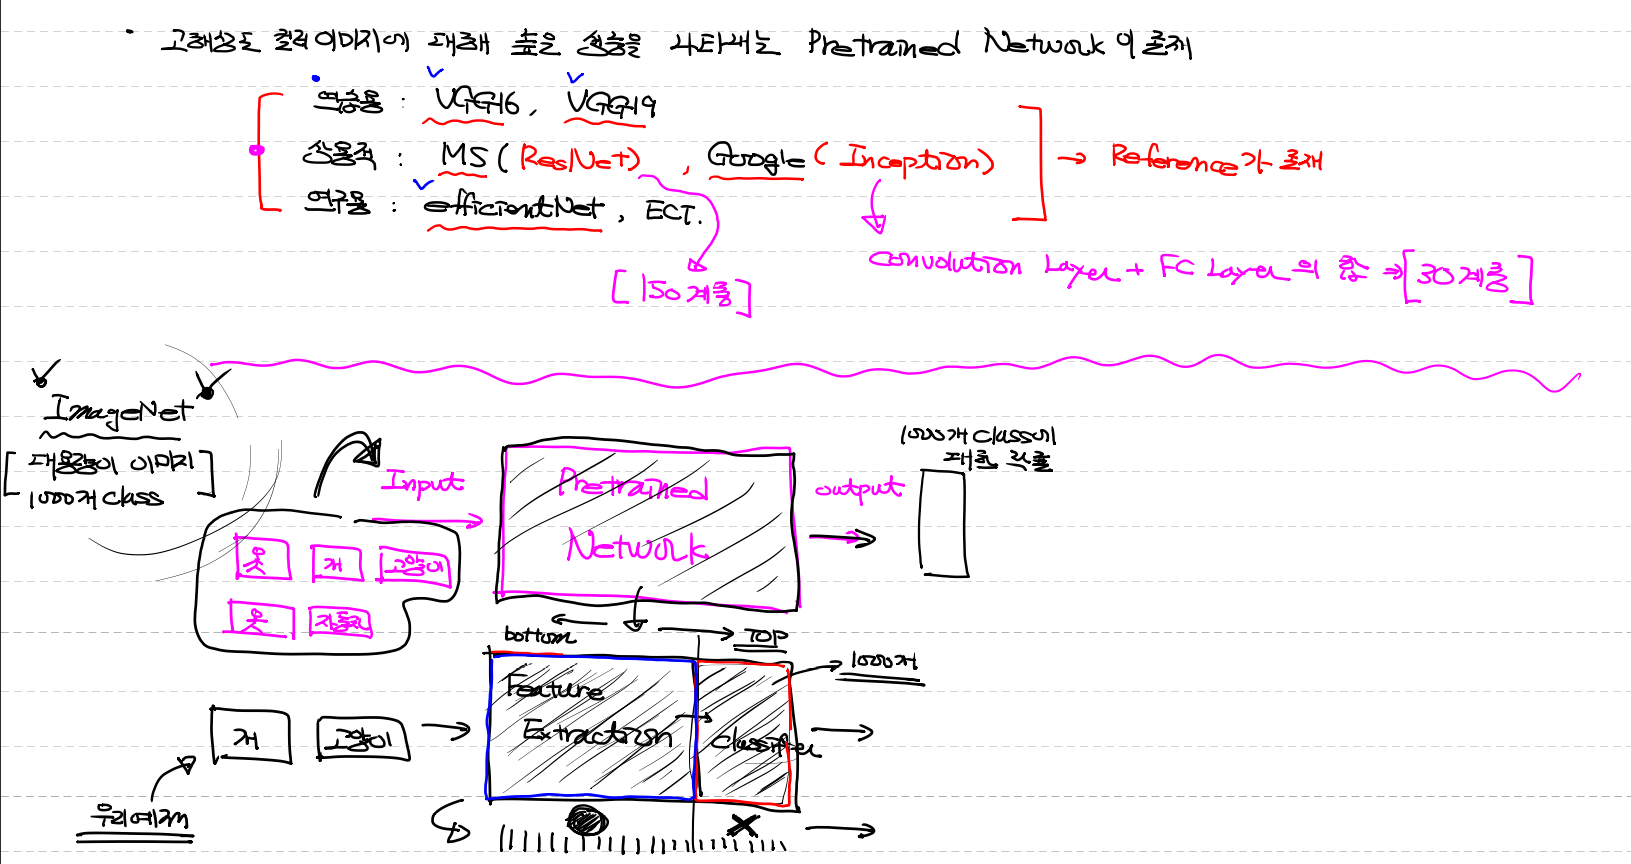 · 고해상도 컬러이미지에 대해 높은 성능을 나타내는 Pretrained Network 이 존재
연습용 : VGG16, VGG19
상용적 : MS(ResNet), Google(Inception) → Reference가 존재
연구용 : efficientNet, ECT.
Convolution Layer + FC Layer의 합 ⇒ [30계층]
[150계층]
ImageNet
[대용량이 이미지
1000개 class]
Input
Pretrained
Network
output
1000개 class에
대한 확률
옷 개 고양이
옷 자동차
bottom
TOP
Feature
Extraction
Classifier
1000개
개 고양이
우리예제